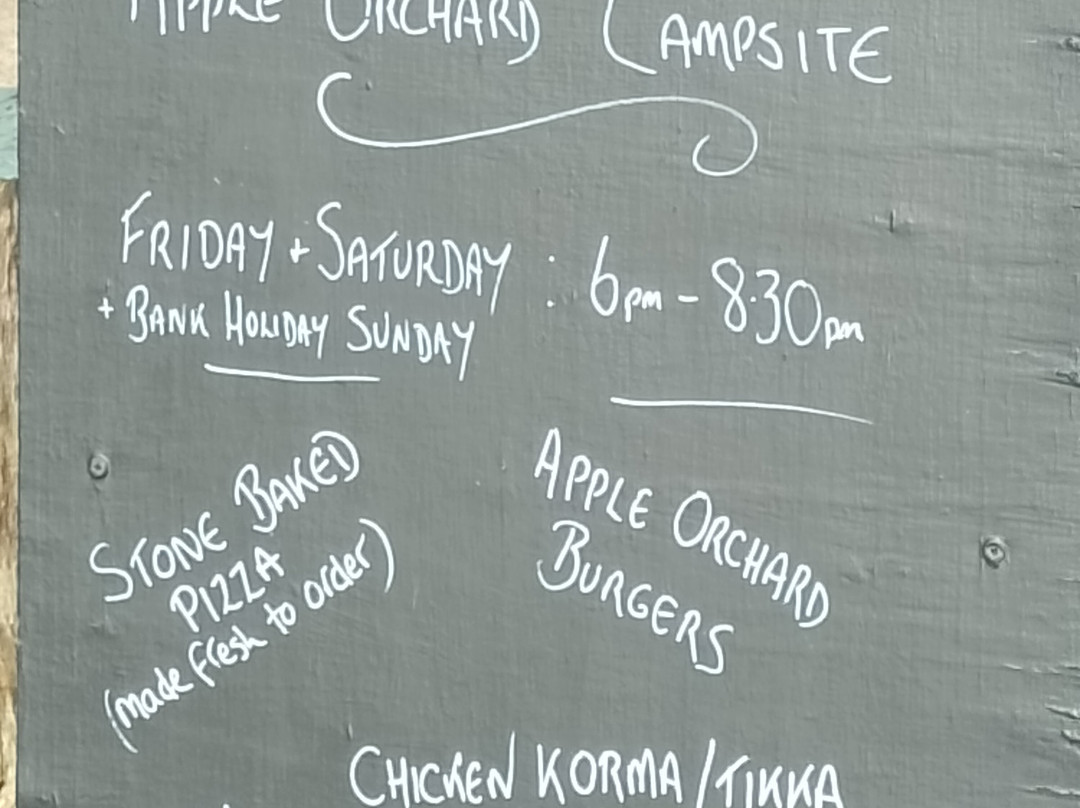 APPLE ORCHARD CAMPSITE
FRIDAY + SATURDAY : 6pm - 8.30pm
+ BANK HOLIDAY SUNDAY
STONE BAKED
PIZZA
(made fresh to order)
APPLE ORCHARD
BURGERS
CHICKEN KORMA/TIKKA